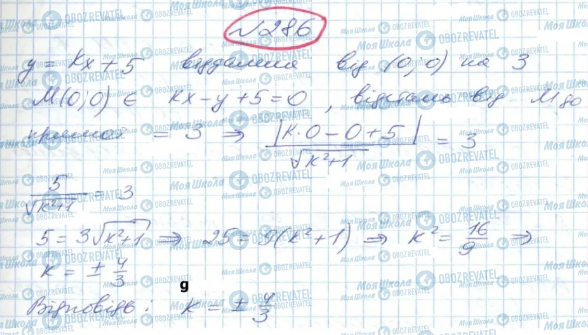 №286
y = kx + 5 віддалена від (0; 0) на 3
M(0; 0) є kx - y + 5 = 0, відстань від M до
прямої = 3 ⇒ |k·0 - 0 + 5| / √(k²+1) = 3
5 / √(k²+1) = 3
5 = 3√(k²+1) ⇒ 25 = 9(k²+1) ⇒ k² = 16/9 ⇒
k = ± 4/3
g
Відповідь: k = ± 4/3